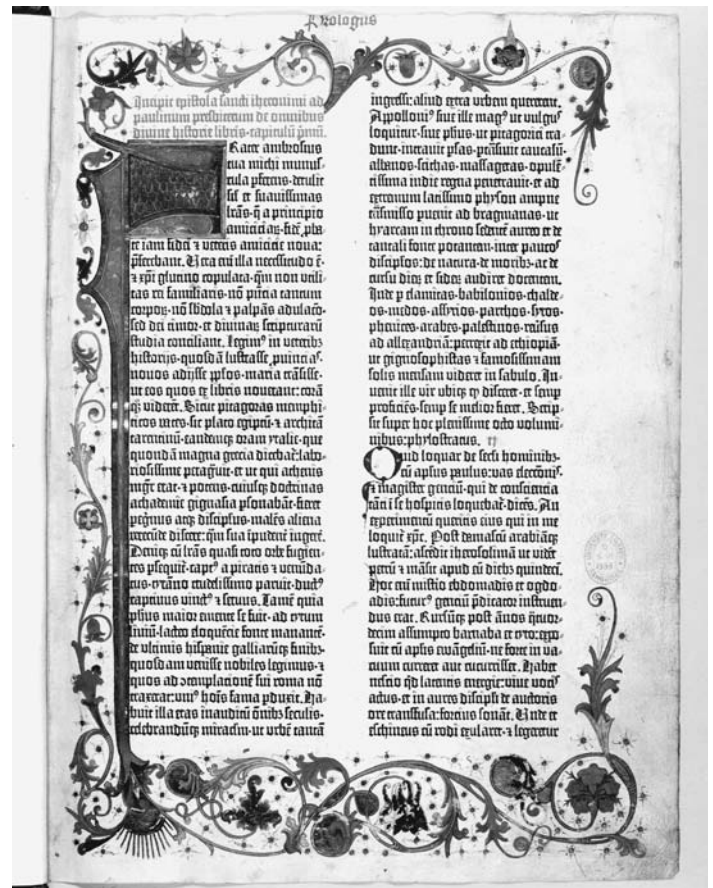 Prologus
Incipit epistola sancti iheronimi ad
paulinum presbiterum de omnibus
divine historie libris·capitulũ pmũ.
Frater ambrosius
tua michi munus-
cula pferens·detulit
sił et suavissimas
lrãs·q̃ a principio
amiciciaꝝ·fidẽ pba-
te iam fidei ⁊ veteris amicicie nova:
pferebant. Vera enĩ illa necessitudo ẽ·
⁊ xpi glutino copulata·qm non utili-
tas rei familiaris·nõ pñcia tantum
corpoꝝ·nõ sbdola ⁊ palpãs adulacõ·
sed dei timor·et divinaꝝ scripturarũ
studia conciliant. Legimꝰ in veteribꝫ
historijs·quosdã lustrasse puincias·
novos adijsse pplos·maria trãsisse·
ut eos quos ex libris noverant: corã
qꝫ viderẽt. Sicut pitagoras memphi-
ticos vates·sic plato egiptũ·⁊ architã
tarentinũ·eandemqꝫ oram ytalie·que
quondã magna grecia dicebat̃:labo-
riosissime peragvit·et ut qui athenis
mgr̃ erat·⁊ potens·cuiusqꝫ doctrinas
achademie gignasia psonabãt·fieret
pegrinus atqꝫ discipulus·malẽs aliena
verecũde discere:qm sua ĩpudent̃ ingerẽ.
Deniqꝫ cũ lrãs quasi toto orbe fugien-
tes psequit̃·captꝰ a piratis ⁊ venũda-
tus·tyrãno crudelissimo paruit·ductꝰ
captivus vinctꝰ ⁊ servus. Tamẽ quia
phus maior emente se fuit·ad tytum
liviũ·lacteo eloquẽcie fonte manantẽ·
de ultimis hispanie galliarũqꝫ finibꝫ·
quosdam venisse nobiles legimus·⁊
quos ad 9templacionẽ sui roma nõ
traxerat:uniꝰ hoĩs fama pduxit. Ha-
buit illa etas inauditũ õnibꝫ seculis·
celebrandũqꝫ miraclm·ut urbẽ tantã
ingressi:aliud extra urbem quererent.
Appolloniꝰ sive ille magꝰ ut vulgꝰ
loquitur·sive phus·ut pitagorici tra-
dunt·intravit psas·ptrãsivit caucasũ·
albanos·scithas·massagetas·opulẽ-
tissima indie regna penetravit·et ad
extremum latissimo physon ampne
trãsmisso puenit ad bragmanas·ut
hyarcam in throno sedentẽ aureo et de
tantali fonte potantem·inter paucoˢ
discipłos:de natura·de moribꝫ·ac de
cursu dieꝝ et sideꝝ audiret docentem.
Inde p elamitas·babilonios·chalde-
os·medos·assyrios·parthos·syros·
phenices·arabes·palestinos·revsus
ad allexandriã:perrexit ad ethiopiã·
ut gignosophistas ⁊ famosissimam
solis mensam videret in sabulo. In-
venit ille vir ubiqꝫ qd disceret·et semp
proficiẽs·semp se melior fieret. Scrip-
sit super hoc plenissime octo volumi-
nibus:phylostratus. II
Quid loquar de secłi hominibꝫ·
cũ apłus paulus:vas eleccõnis·
⁊ magister genciũ·qui de consciencia
tãti ĩ se hospitis loquebat̃·dicẽs. An
experimentũ queritis eius qui in me
loquit̃ xpc. Post damascũ arabiãqꝫ
lustratã:ascẽdit iherosolimã ut videret
petrũ ⁊ mãsit apud eũ diebꝫ quindeci.
Hoc enĩ misterio ebdomadis et ogdo-
adis:futurꝰ genciũ pdicator instruen-
dus erat. Rursũqꝫ post ãnos q̃tuor-
decim assumpto barnaba et tyto:expo-
suit cũ apłis ewãgeliũ·ne forte in va-
cuum curreret aut cucurrisset. Habet
nescio qd latentis energie:vive vocis
actus·et in aures discipłi de auctoris
ore transfusa:forcius sonat. Unde et
eschineus cũ rodi exularet·⁊ legeretur